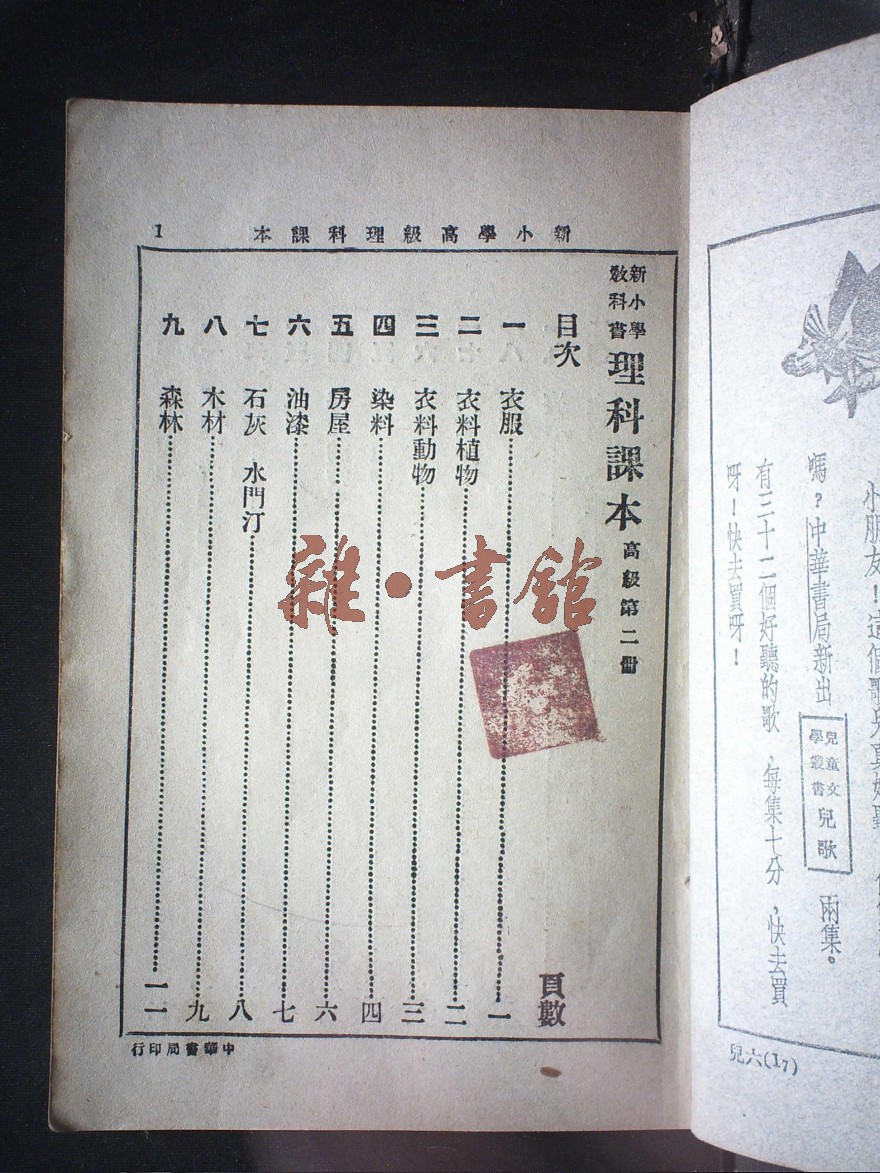 新小學高級理科課本
1
新小學
教科書
理科課本 高級第二冊
目次 頁數
一 衣服 一
二 衣料植物 二
三 衣料動物 三
四 染料 四
五 房屋 六
六 油漆 七
七 石灰 水門汀 八
八 木材 九
九 森林 一一
中華書局印行
雜·書館
小朋友!這個歌兒真好聽
嗎?中華書局新出
兒童文
學叢書
兒歌
兩集。
有三十二個好聽的歌,每集十分,快去買
呀!快去買呀!
兒六(17)